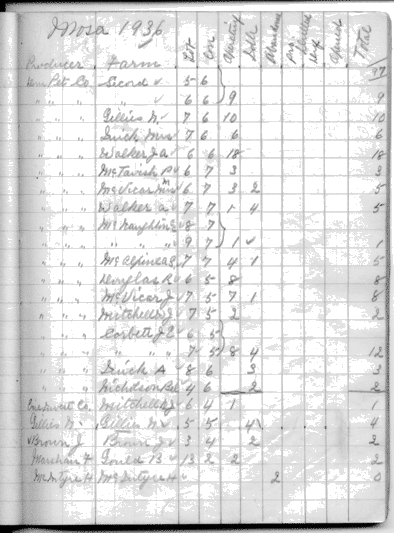 Mosa 1936
Producer Farm Lot Con Operating Idle Abandoned Total
37
Pet Co Secord 5 6
" " " " 6 6 9 9
" " " Gillies N. 7 6 10 10
" " " Quick Mrs 7 6 6 6
" " " Walker J A 6 6 18 18
" " " McTavish 6 7 3 3
" " " McVicar 6 7 3 2 5
" " " Walker A 7 7 1 4 5
" " " McNaughton 8 7
" " " " " 9 7 1 1
" " " McAlpine 7 7 4 1 5
" " " Douglas R 6 5 8 8
" " " McVicar J 7 5 7 1 8
" " " Mitchell J 7 5 2 2
" " " Corbett J E 6 5
" " " " 7 5 8 4 12
" " " Quick A 8 6 3 3
" " " Nicholson 4 6 2 2
Co. Mitchell J 6 4 1 1
Gillies N. Gillies N 5 5 4 4
Brown J. Brown J 3 4 2 2
Marshall F Gould B 13 2 2 2
McIntyre H McIntyre H 2 0